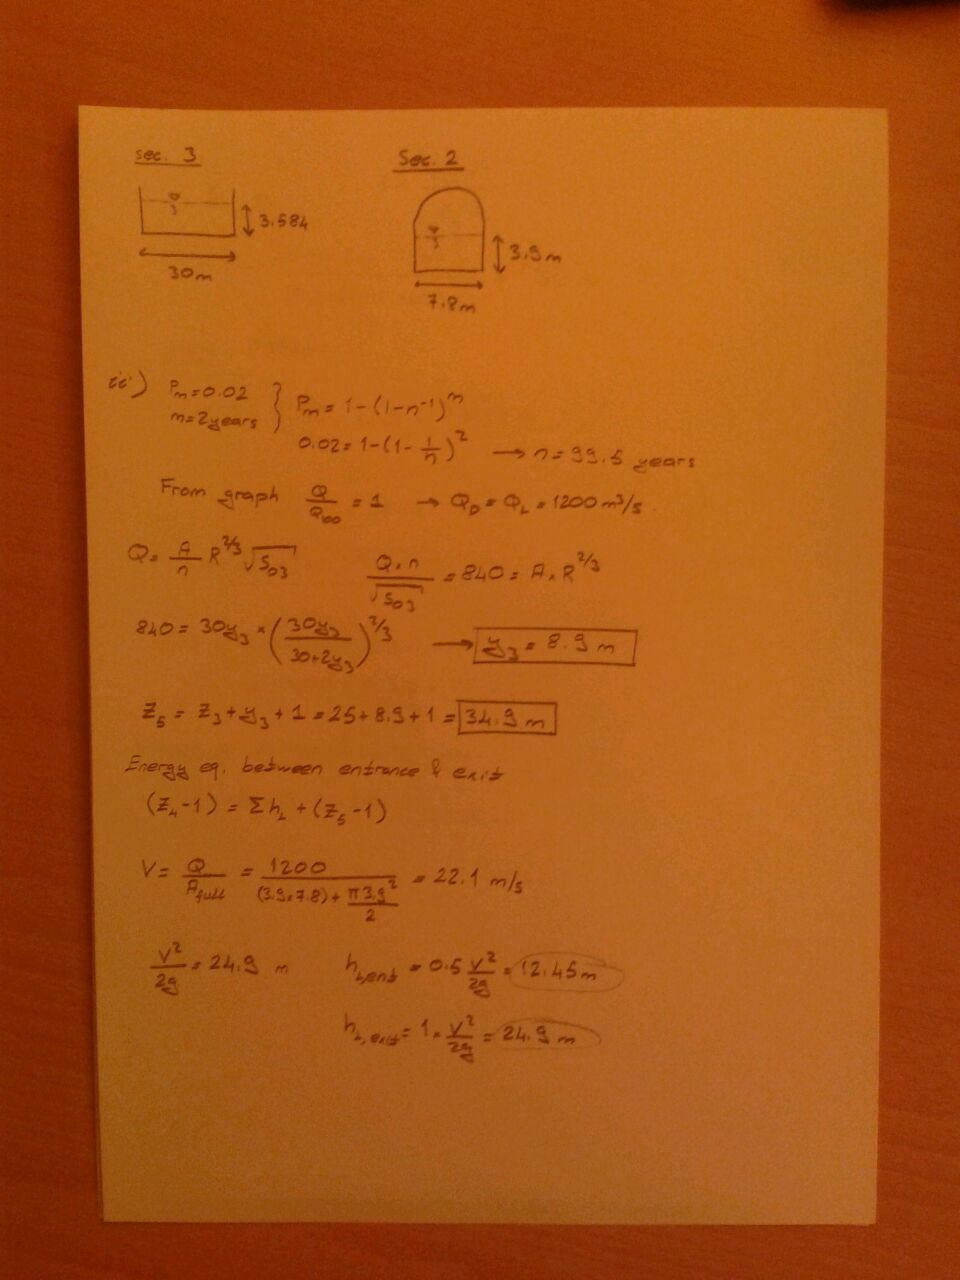 sec. 3
Sec. 2
3.584
30m
3.9m
7.8m
ii) Pm=0.02
m=2years } Pm = 1-(1-n⁻¹)ᵐ
0.02=1-(1-1/n)² → n=99.5 years
From graph Q/Q100 = 1 → QD = QL = 1200 m³/s
Q= A/n R^2/3 √S03 Q×n/√S03 = 840 = A×R^2/3
840 = 30y3 × (30y3/30+2y3)^2/3 → y3 = 8.9 m
Z5 = Z3+y3+1 = 25+8.9+1 = 34.9 m
Energy eq. between entrance & exit
(Z4-1) = ΣhL + (Z5-1)
V= Q/Afull = 1200/(3.9×7.8)+ π3.9²/2 = 22.1 m/s
V²/2g = 24.9 m hL,ent = 0.5 V²/2g = 12.45m
hL,exit = 1× V²/2g = 24.9 m